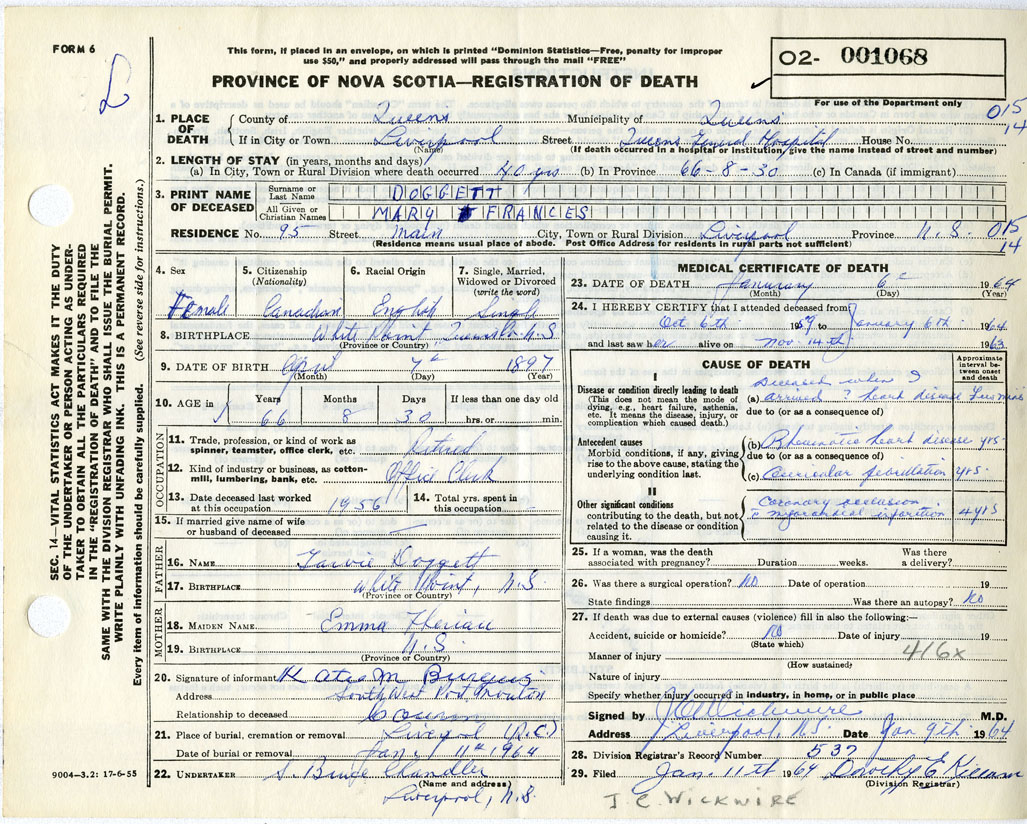 FORM 6
This form, if placed in an envelope, on which is printed "Dominion Statistics—Free, penalty for improper
use $50," and properly addressed will pass through the mail "FREE"
PROVINCE OF NOVA SCOTIA—REGISTRATION OF DEATH
O2- 001068
For use of the Department only
015
14
SEC. 14—VITAL STATISTICS ACT MAKES IT THE DUTY
OF THE UNDERTAKER OR PERSON ACTING AS UNDER-
TAKER TO OBTAIN ALL THE PARTICULARS REQUIRED
IN THE "REGISTRATION OF DEATH" AND TO FILE THE
SAME WITH THE DIVISION REGISTRAR WHO SHALL ISSUE THE BURIAL PERMIT.
WRITE PLAINLY WITH UNFADING INK. THIS IS A PERMANENT RECORD.
Every item of information should be carefully supplied. (See reverse side for instructions.)
1. PLACE OF DEATH County of Queens Municipality of Queens
If in City or Town Liverpool Street Queens General Hospital House No.
(Name) (If death occurred in a hospital or institution, give the name instead of street and number)
2. LENGTH OF STAY (in years, months and days)
(a) In City, Town or Rural Division where death occurred 40 yrs (b) In Province 66-8-30 (c) In Canada (if immigrant)
3. PRINT NAME OF DECEASED Surname or Last Name DOGGETT
All Given or Christian Names MARY FRANCES
RESIDENCE No. 95 Street Main City, Town or Rural Division Liverpool Province N.S. 015
14
(Residence means usual place of abode. Post Office Address for residents in rural parts not sufficient)
4. Sex 5. Citizenship (Nationality) 6. Racial Origin 7. Single, Married, Widowed or Divorced (write the word)
Female Canadian English Single
8. BIRTHPLACE White Point, N.S.
(Province or Country)
9. DATE OF BIRTH April 7th 1897
(Month) (Day) (Year)
10. AGE in Years Months Days If less than one day old
66 8 30 hrs. or min.
OCCUPATION
11. Trade, profession, or kind of work as
spinner, teamster, office clerk, etc. Retired
12. Kind of industry or business, as cotton-
mill, lumbering, bank, etc. Office Clerk
13. Date deceased last worked
at this occupation 1956
14. Total yrs. spent in
this occupation
15. If married give name of wife
or husband of deceased
FATHER
16. NAME Doggett
17. BIRTHPLACE White Point, N.S.
(Province or Country)
MOTHER
18. MAIDEN NAME Emma
19. BIRTHPLACE N.S.
(Province or Country)
20. Signature of informant Katie M
Address South West Port Mouton
Relationship to deceased Cousin
21. Place of burial, cremation or removal Liverpool (R.C.)
Date of burial or removal Jan. 11th 1964
22. UNDERTAKER S. Bruce Chandler
(Name and address)
Liverpool, N.S.
9004—3.2: 17-6-55
MEDICAL CERTIFICATE OF DEATH
23. DATE OF DEATH January 6th 1964
(Month) (Day) (Year)
24. I HEREBY CERTIFY that I attended deceased from
Oct 6th 1959 to January 6th 1964
and last saw her alive on Nov. 14th 1963
CAUSE OF DEATH
Approximate interval between onset and death
I
Disease or condition directly leading to death
(This does not mean the mode of
dying, e.g., heart failure, asthenia,
etc. It means the disease, injury, or
complication which caused death.)
Deceased when I
(a) arrived ? heart disease
due to (or as a consequence of)
Antecedent causes
Morbid conditions, if any, giving
rise to the above cause, stating the
underlying condition last.
(b) Rheumatic heart disease yrs.
due to (or as a consequence of)
(c) Auricular fibrillation yrs.
II
Other significant conditions
contributing to the death, but not
related to the disease or condition
causing it.
Coronary occlusion
c myocardial infarction 4 yrs
25. If a woman, was the death
associated with pregnancy? Duration weeks. Was there
a delivery?
26. Was there a surgical operation? No Date of operation 19
State findings Was there an autopsy? No
27. If death was due to external causes (violence) fill in also the following:—
Accident, suicide or homicide? No Date of injury 19
(State which)
416x
Manner of injury
(How sustained)
Nature of injury
Specify whether injury occurred in industry, in home, or in public place
Signed by J C Wickwire M.D.
Address Liverpool, N.S. Date Jan 9th 1964
28. Division Registrar's Record Number 537
29. Filed Jan. 11th 1964 Dorothy E Killam
(Division Registrar)
J. C. WICKWIRE